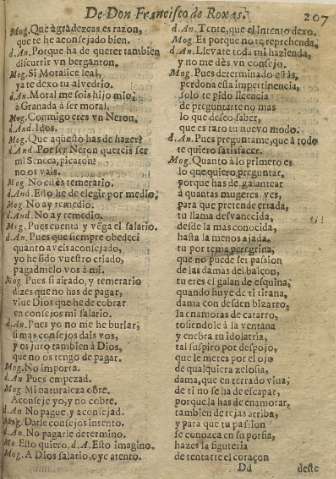 De Don Francisco de Roxas. 207
Mog. Que agradezcas es razon,
que te he aconsejado bien.
d. An. Porque ha de querer tambien
discurrir vn berganton.
Mog. Si Moralice leal,
ya te dexo tu alvedrio.
d. An. Moral me sois hijo mio?
à Granada à ser moral.
Mog. Conmigo eres vn Neron.
d. And. Idos.
Mog. Que aquesto has de hazer?
d. And. Por ser Neron quereis ser
mi Seneca, picaron?
no os vais.
Mog. No es temerario.
d. And. Esto he de elegir por medio.
Mog. No ay remedio.
d. And. No ay remedio.
Mog. Pues cuenta y véga el salario.
d. An. Pues que siempre obedecí
quanto aveis aconsejado,
yo he sido vuestro criado,
pagadmelo vos à mi.
Mog. Pues si ayrado, y temerario
dizes que no has de pagar,
vive Dios que he de cobrar
en consejos mi salario.
d. An. Pues yo no me he burlar,
si mas consejos dais vos,
y os juro tambien à Dios,
que no os tengo de pagar.
Mog. No importa.
d. An. Pues empezad.
Mog. Mi naturaleza obre,
Aconseje yo, y no cobre.
d. An. No pague, y aconsejad.
Mog. Darle consejos intento.
d. An. No pagarle determino.
Mo. Esto quiero. d. A. Esto imagino.
Mog. A Dios salario. oye atento.
d. An. Tente, que el intento dexo.
Mog. Es porque no te reprehenda.
d. An. Llevate toda mi hazienda,
y no me dès vn consejo.
Mog. Pues determinado estàs,
perdona esta impertinencia,
solo te pido licencia
de preguntarte no mas
lo que deseo saber,
que es raro tu nuevo modo.
d. An. Pues preguntame, que à todo
te quiero satisfacer.
Mog. Quanto à lo primero es
lo que quiero preguntar,
porque has de galantear
a quantas mugeres ves,
para que pretende errada,
tu llama desvanecida,
desde la mas conocida,
hasta la menos ajada,
tu por tema peregrina,
que no puede ser passion
de las damas del balcon,
tu eres el galan de esquina,
quando huye de ti tirana,
dama con desden bizarro,
la enamoras de catarro,
tosiendole à la ventana
y en obra tu idolatria,
tal suspiro por despojo,
que le merez por el ojo
de qualquiera zelosia,
dama, que en terrado vive,
de ti no se ha de escapar,
porque la has de enamorar,
tambien de tejas arriba,
y para que tu passion
se conozca en su porfia,
hazes la figureria
de sentarte el coraçon
Dd deste